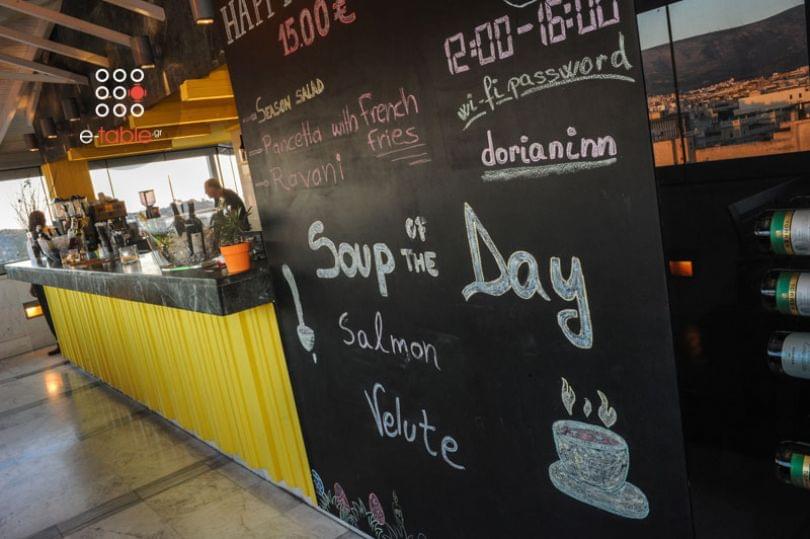 HAPP
15.00€
SEASON SALAD
Pancetta with French
fries
Ravani
12:00-16:00
wi-fi password
dorianinn
Soup OF THE Day
Salmon
Velute
e-table.gr